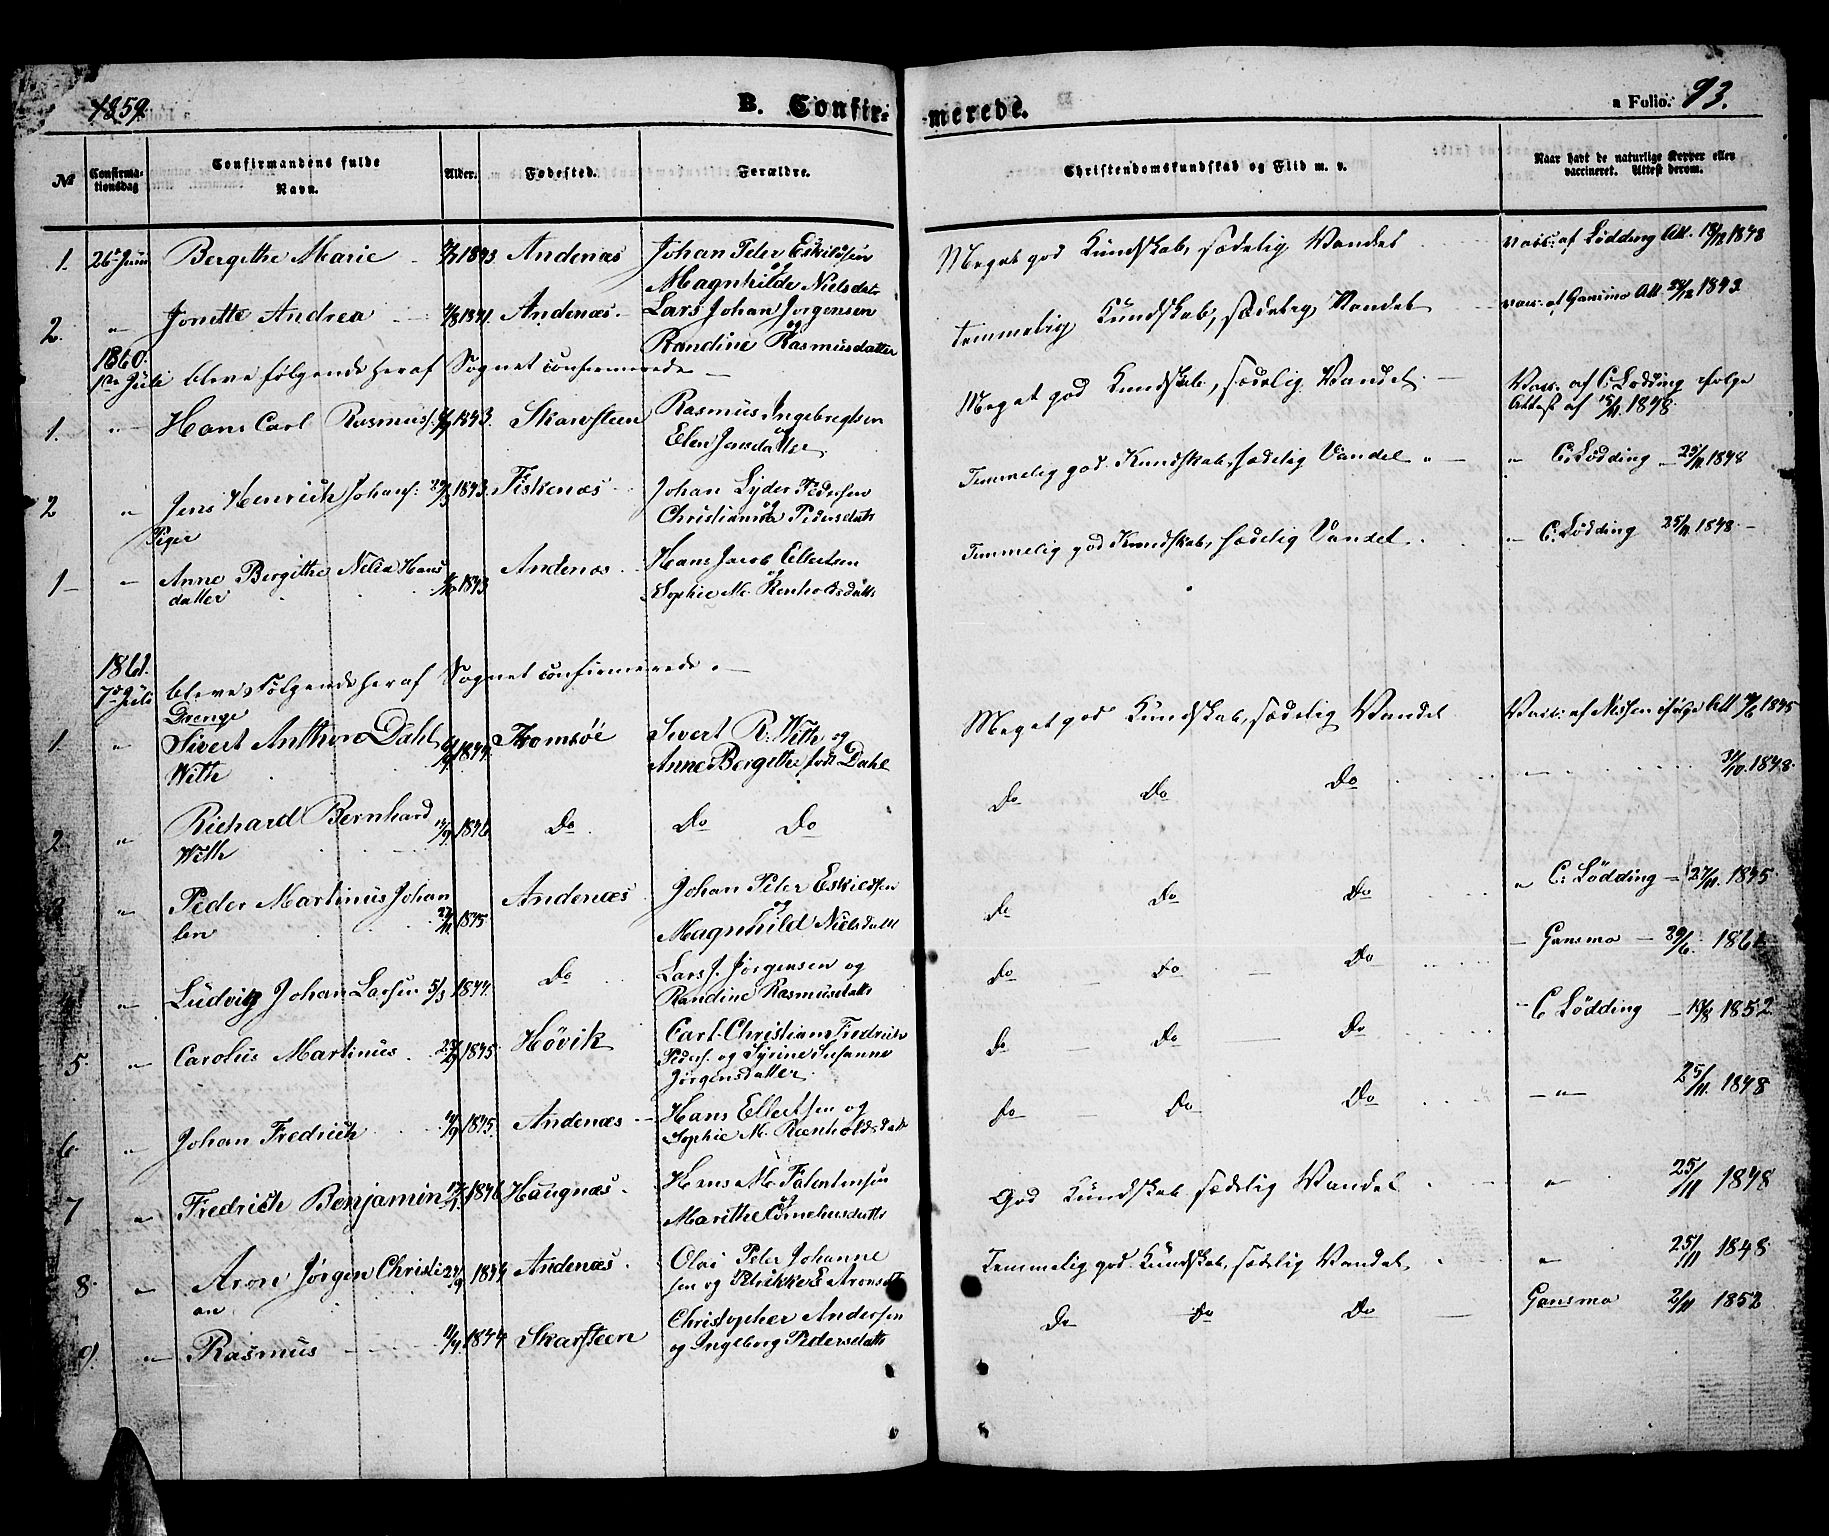 1859. B. Confir- merede. a Folio. 93.
№ Confirma-tionsdag Confirmandens fulde Navn. Alder. Fødested. Forældre. Christendomskundskab og Flid m. v. Naar havt de naturlige Kopper eller vaccineret. Attest derom.
1. 26 Juni Bergithe Marie 1843 Andenæs Johan Peter Eskildsen Meget god Kundskab, sædelig Vandel vacc: af Lødding Att. 1848
og Magnhilde Nielsdatr
2. " Jonette Andrea 1841. Andenæs. Lars Johan Jørgensen temmelig Kundskab, sædelig Vandel vacc. af Gansmo Att 1843
og Randine Rasmusdatter
1860.
1ste Juli bleve følgende heraf Sognet confirmerede
1. " Hans Carl Rasmuss. 1843. Skarvsteen Rasmus Ingebregtsen Meget god Kundskab, sædelig Vandel. Vacc. af C. Lødding ifølge
og Elen Jensdatter Attest af 15/11 1848.
2 " Jens Henrich Johans: 1843. Fiskenæs Johan Lyder Pedersen Temmelig god Kundskab, sædelig Vandel " " C: Lødding 25/11 1848
og Christianna Pedersdatr
Piger
1 " Anne Bergithe Nelia Hans 1843 Andenæs Hans Jacob Ellertsen Temmelig god Kundskab, sædelig Vandel. " C: Lødding 25/11 1848
datter og Sophie M. Renholdsdatr
1861.
7de Juli bleve Følgende heraf Sognet confirmerede.
Drenge
1. " Sivert Anthon Dahl 1844. Tromsøe Sivert R. With og Meget god Kundskab, sædelig Vandel Vacc: af Nissen ifølge Att 1845
With Anne Bergithe født Dahl
2. " Richard Bernhard 1846 Do Do Do Do Do Do " 31/10. 1848.
With
3 " Peder Martinus Johan 27/11 1845 Andenæs Johan Peter Eskildsen Do Do Do " C: Lødding 27/11. 1845.
sen og Magnhild Nielsdatt
4 " Ludvig Johan Larsen 5/3 1844. Do Lars J. Jørgensen og Do Do Do Gansmo 29/6. 1861
Randine Rasmusdatr
5. " Carolus Martinus 1845 Høvik Carl Christian Fredrich Do Do Do C Lødding 18/8 1852
Peders. og Syrine Susanne
Jørgensdatter.
6. " Johan Fredrich 1845. Andenæs Hans Ellertsen og Do Do Do " 25/11. 1848
Sophie M. Rænholdsdatr
7 " Fredrich Benjamin 1846 Haugnæs. Hans M. Falentinsen God Kundskab sædelig Vandel " 25/11 1848
og Marithe Corneliusdatr
8. " Aron Jørgen Christi 1844 Andenæs. Olai Peter Johanne Temmelig god Kundskab, sædelig Vandel " 25/11 1848
an sen og Petrikke E Aronsdt
9. " Rasmus 1844 Skarsteen Christopher Andersen Do Do Do Gansmo 2/11 1852
og Ingeborg Pedersdatr